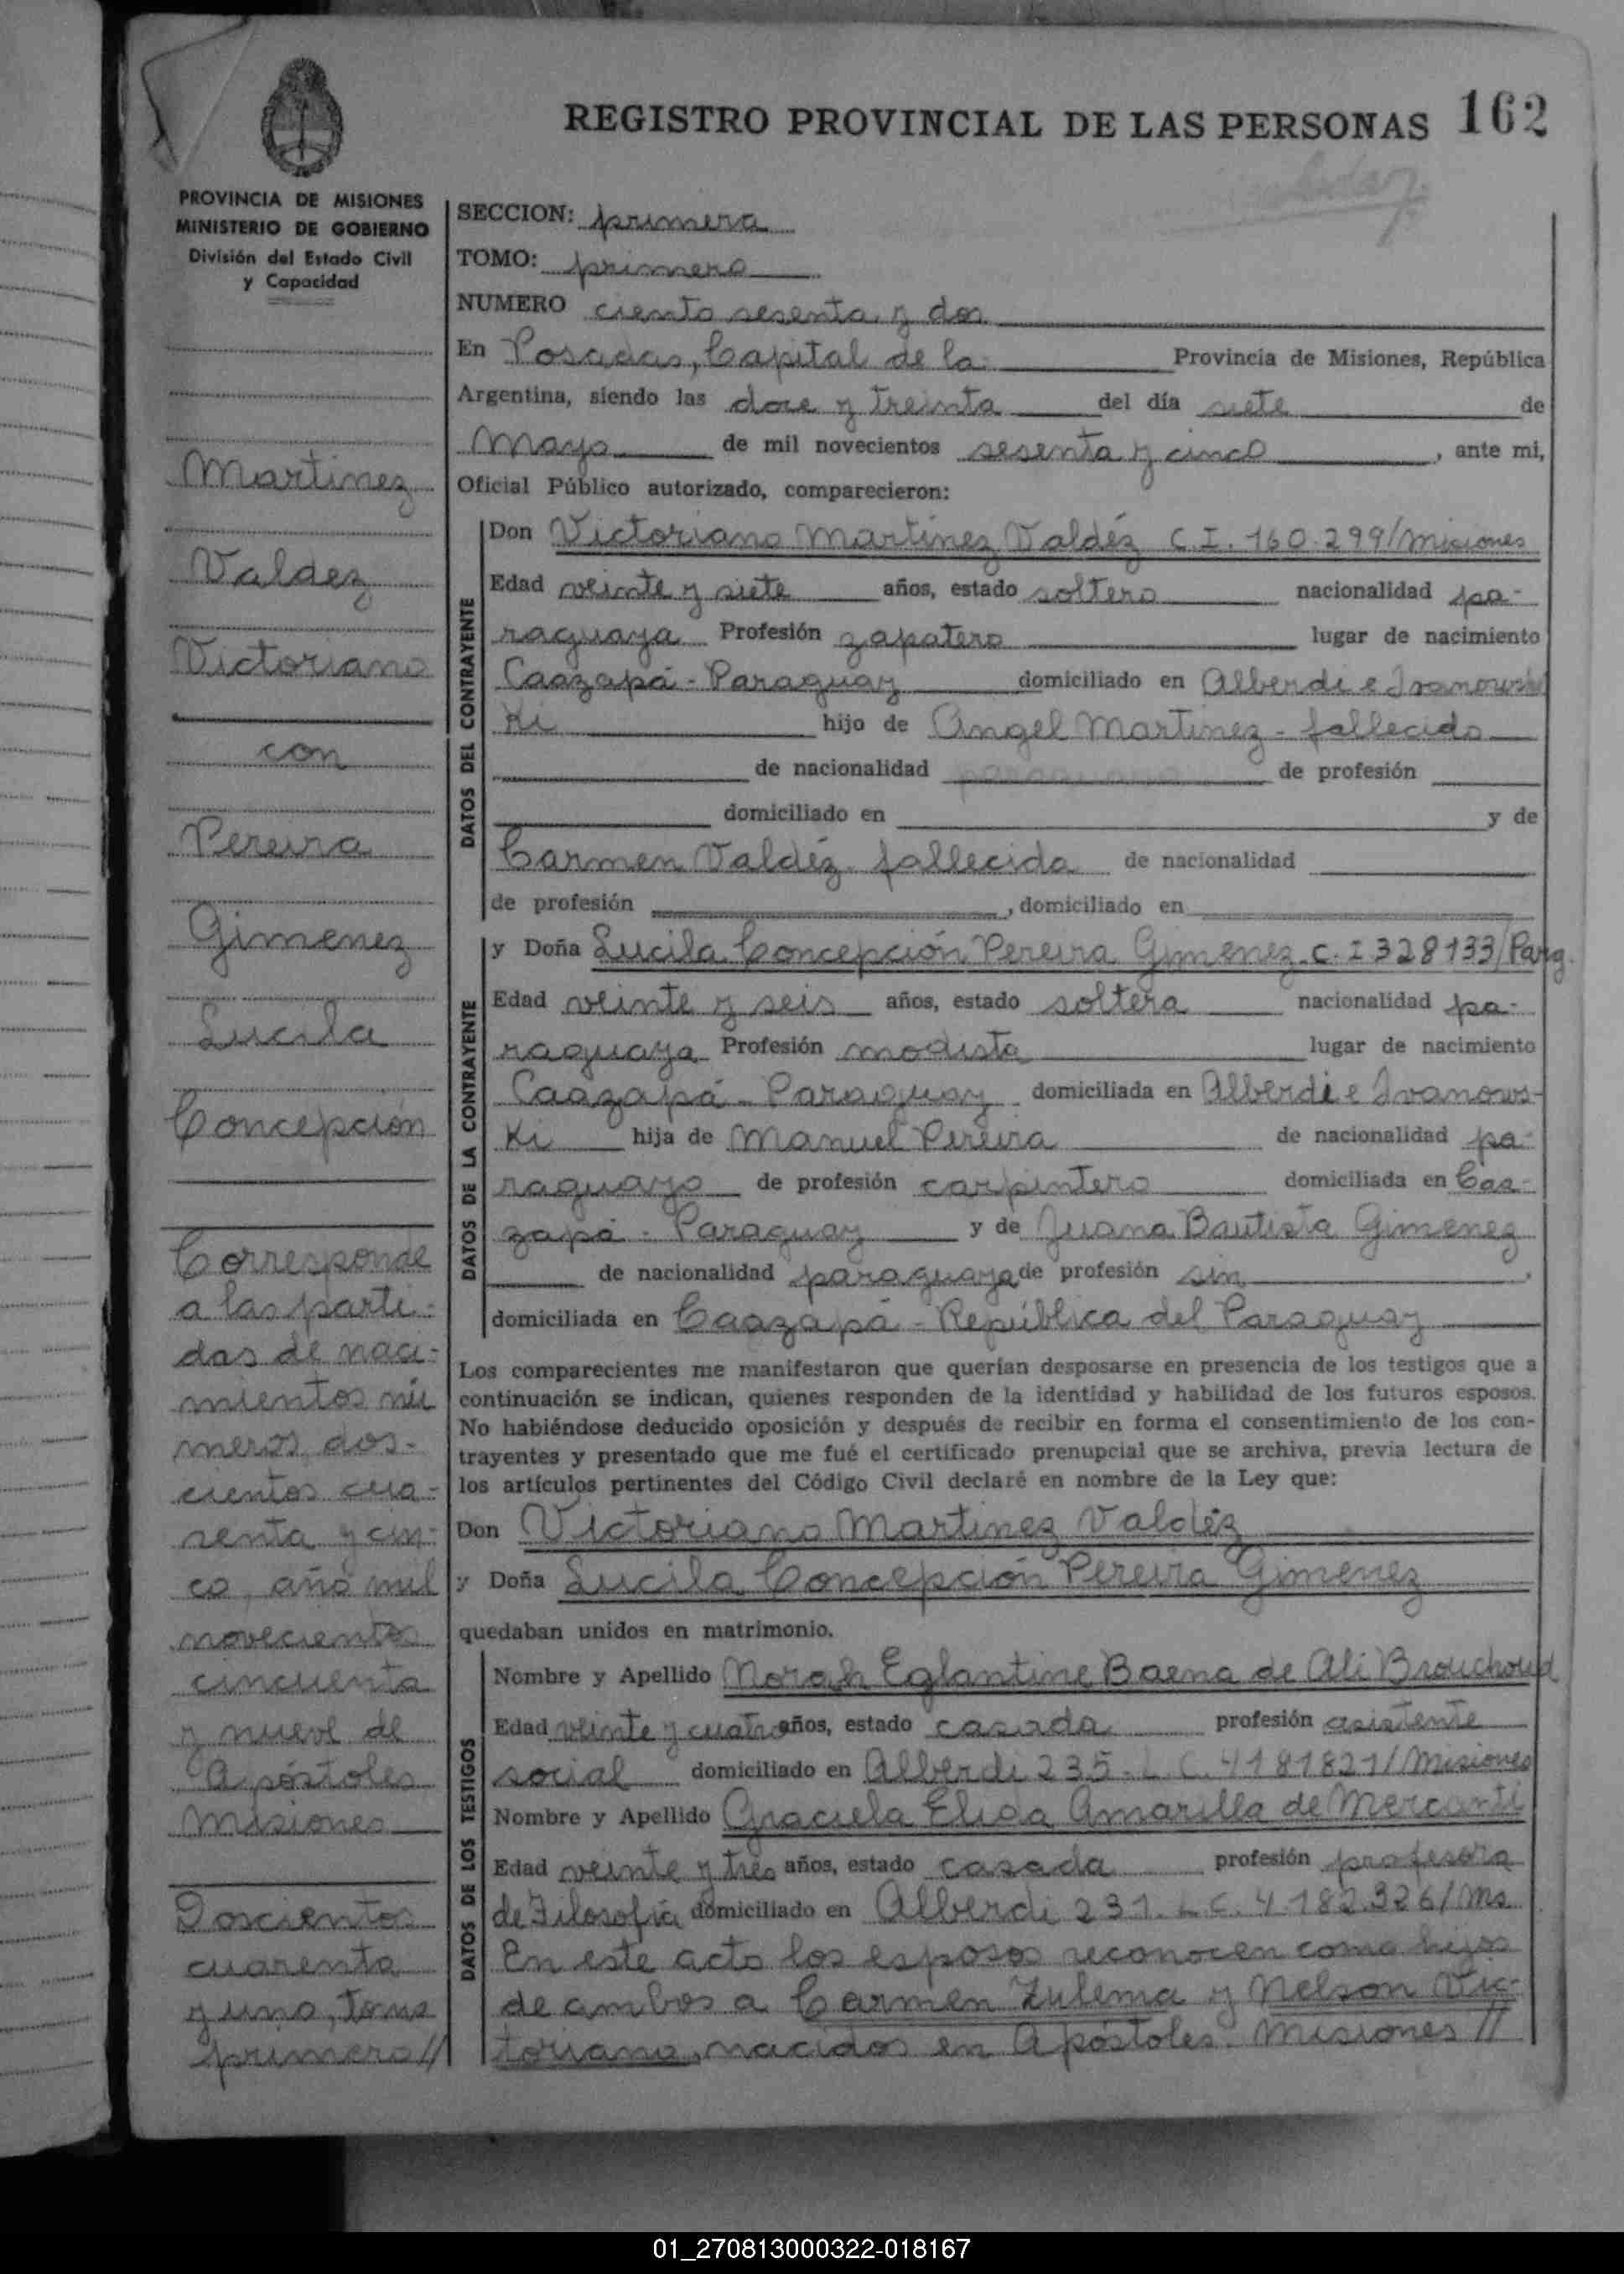 REGISTRO PROVINCIAL DE LAS PERSONAS 162
PROVINCIA DE MISIONES
MINISTERIO DE GOBIERNO
División del Estado Civil
y Capacidad
Martinez
Valdez
Victoriano
con
Pereira
Gimenez
Lucila
Concepción
Corresponde
a las parti-
das de naci-
mientos nú
meros dos-
cientos cua-
renta y cin-
co, año mil
novecientos
cincuenta
y nueve de
Apóstoles
Misiones
Doscientos
cuarenta
y uno, tomo
primero//
SECCION: primera
TOMO: primero
NUMERO ciento sesenta y dos
En Posadas, Capital de la Provincia de Misiones, República
Argentina, siendo las doce y treinta del día siete de
Mayo de mil novecientos sesenta y cinco, ante mi,
Oficial Público autorizado, comparecieron:
DATOS DEL CONTRAYENTE
Don Victoriano Martínez Valdéz C.I. 160.299/Misiones
Edad veinte y siete años, estado soltero nacionalidad pa-
raguaya Profesión zapatero lugar de nacimiento
Caazapá - Paraguay domiciliado en Alberdi e Ivanows
Ki hijo de Angel Martinez - fallecido
de nacionalidad de profesión
domiciliado en y de
Carmen Valdéz - fallecida de nacionalidad
de profesión , domiciliado en
DATOS DE LA CONTRAYENTE
y Doña Lucila Concepción Pereira Gimenez. C. I 328133/Parg.
Edad veinte y seis años, estado soltera nacionalidad pa-
raguaya Profesión modista lugar de nacimiento
Caazapá - Paraguay domiciliada en Alberdi e Ivanows-
Ki hija de Manuel Pereira de nacionalidad pa-
raguayo de profesión carpintero domiciliada en Caa-
zapá - Paraguay y de Juana Bautista Gimenez
de nacionalidad paraguaya de profesión sin ,
domiciliada en Caazapá - República del Paraguay
Los comparecientes me manifestaron que querían desposarse en presencia de los testigos que a
continuación se indican, quienes responden de la identidad y habilidad de los futuros esposos.
No habiéndose deducido oposición y después de recibir en forma el consentimiento de los con-
trayentes y presentado que me fué el certificado prenupcial que se archiva, previa lectura de
los artículos pertinentes del Código Civil declaré en nombre de la Ley que:
Don Victoriano Martinez Valdéz
y Doña Lucila Concepción Pereira Gimenez
quedaban unidos en matrimonio.
DATOS DE LOS TESTIGOS
Nombre y Apellido Norah Eglantine Baena de Ali Brouchoud
Edad veinte y cuatro años, estado casada profesión asistente
social domiciliado en Alberdi 235 - L. C. 4181821/Misiones
Nombre y Apellido Graciela Elida Amarilla de Mercanti
Edad veinte y tres años, estado casada profesión profesora
de Filosofía domiciliado en Alberdi 231. L. C. 4.182.326/Ms.
En este acto los esposos reconocen como hijos
de ambos a Carmen Zulema y Nelson Vic-
toriano, nacidos en Apóstoles. Misiones //
01_270813000322-018167